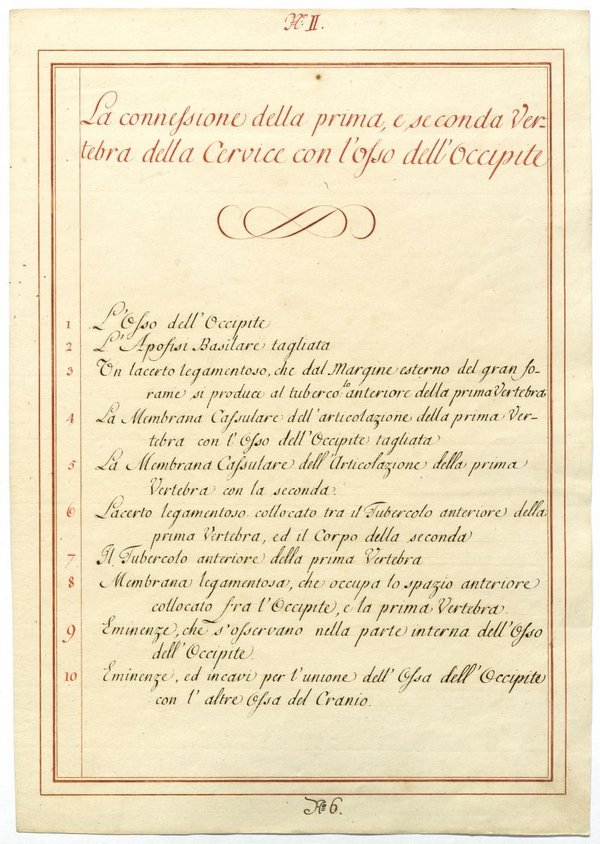 N.º II.
La connessione della prima, e seconda Ver-
tebra della Cervice con l'Osso dell'Occipite
1 L'Osso dell'Occipite
2 L'Apofisi Basilare tagliata
3 Un lacerto legamentoso, che dal Margine esterno del gran fo-
rame si produce al tuberco.lo anteriore della prima Vertebra
4 La Membrana Cassulare dell'articolazione della prima Ver-
tebra con l'Osso dell'Occipite tagliata
5 La Membrana Cassulare dell'Articolazione della prima
Vertebra con la seconda.
6 Lacerto legamentoso collocato tra il Tubercolo anteriore della
prima Vertebra, ed il Corpo della seconda
7 Il Tubercolo anteriore della prima Vertebra
8 Membrana legamentosa, che occupa lo spazio anteriore
collocato fra l'Occipite, e la prima Vertebra.
9 Eminenze, che s'osservano nella parte interna dell'Osso
dell'Occipite.
10 Eminenze, ed incavi per l'unione dell'Ossa dell'Occipite
con l'altre Ossa del Cranio.
N.º 6.